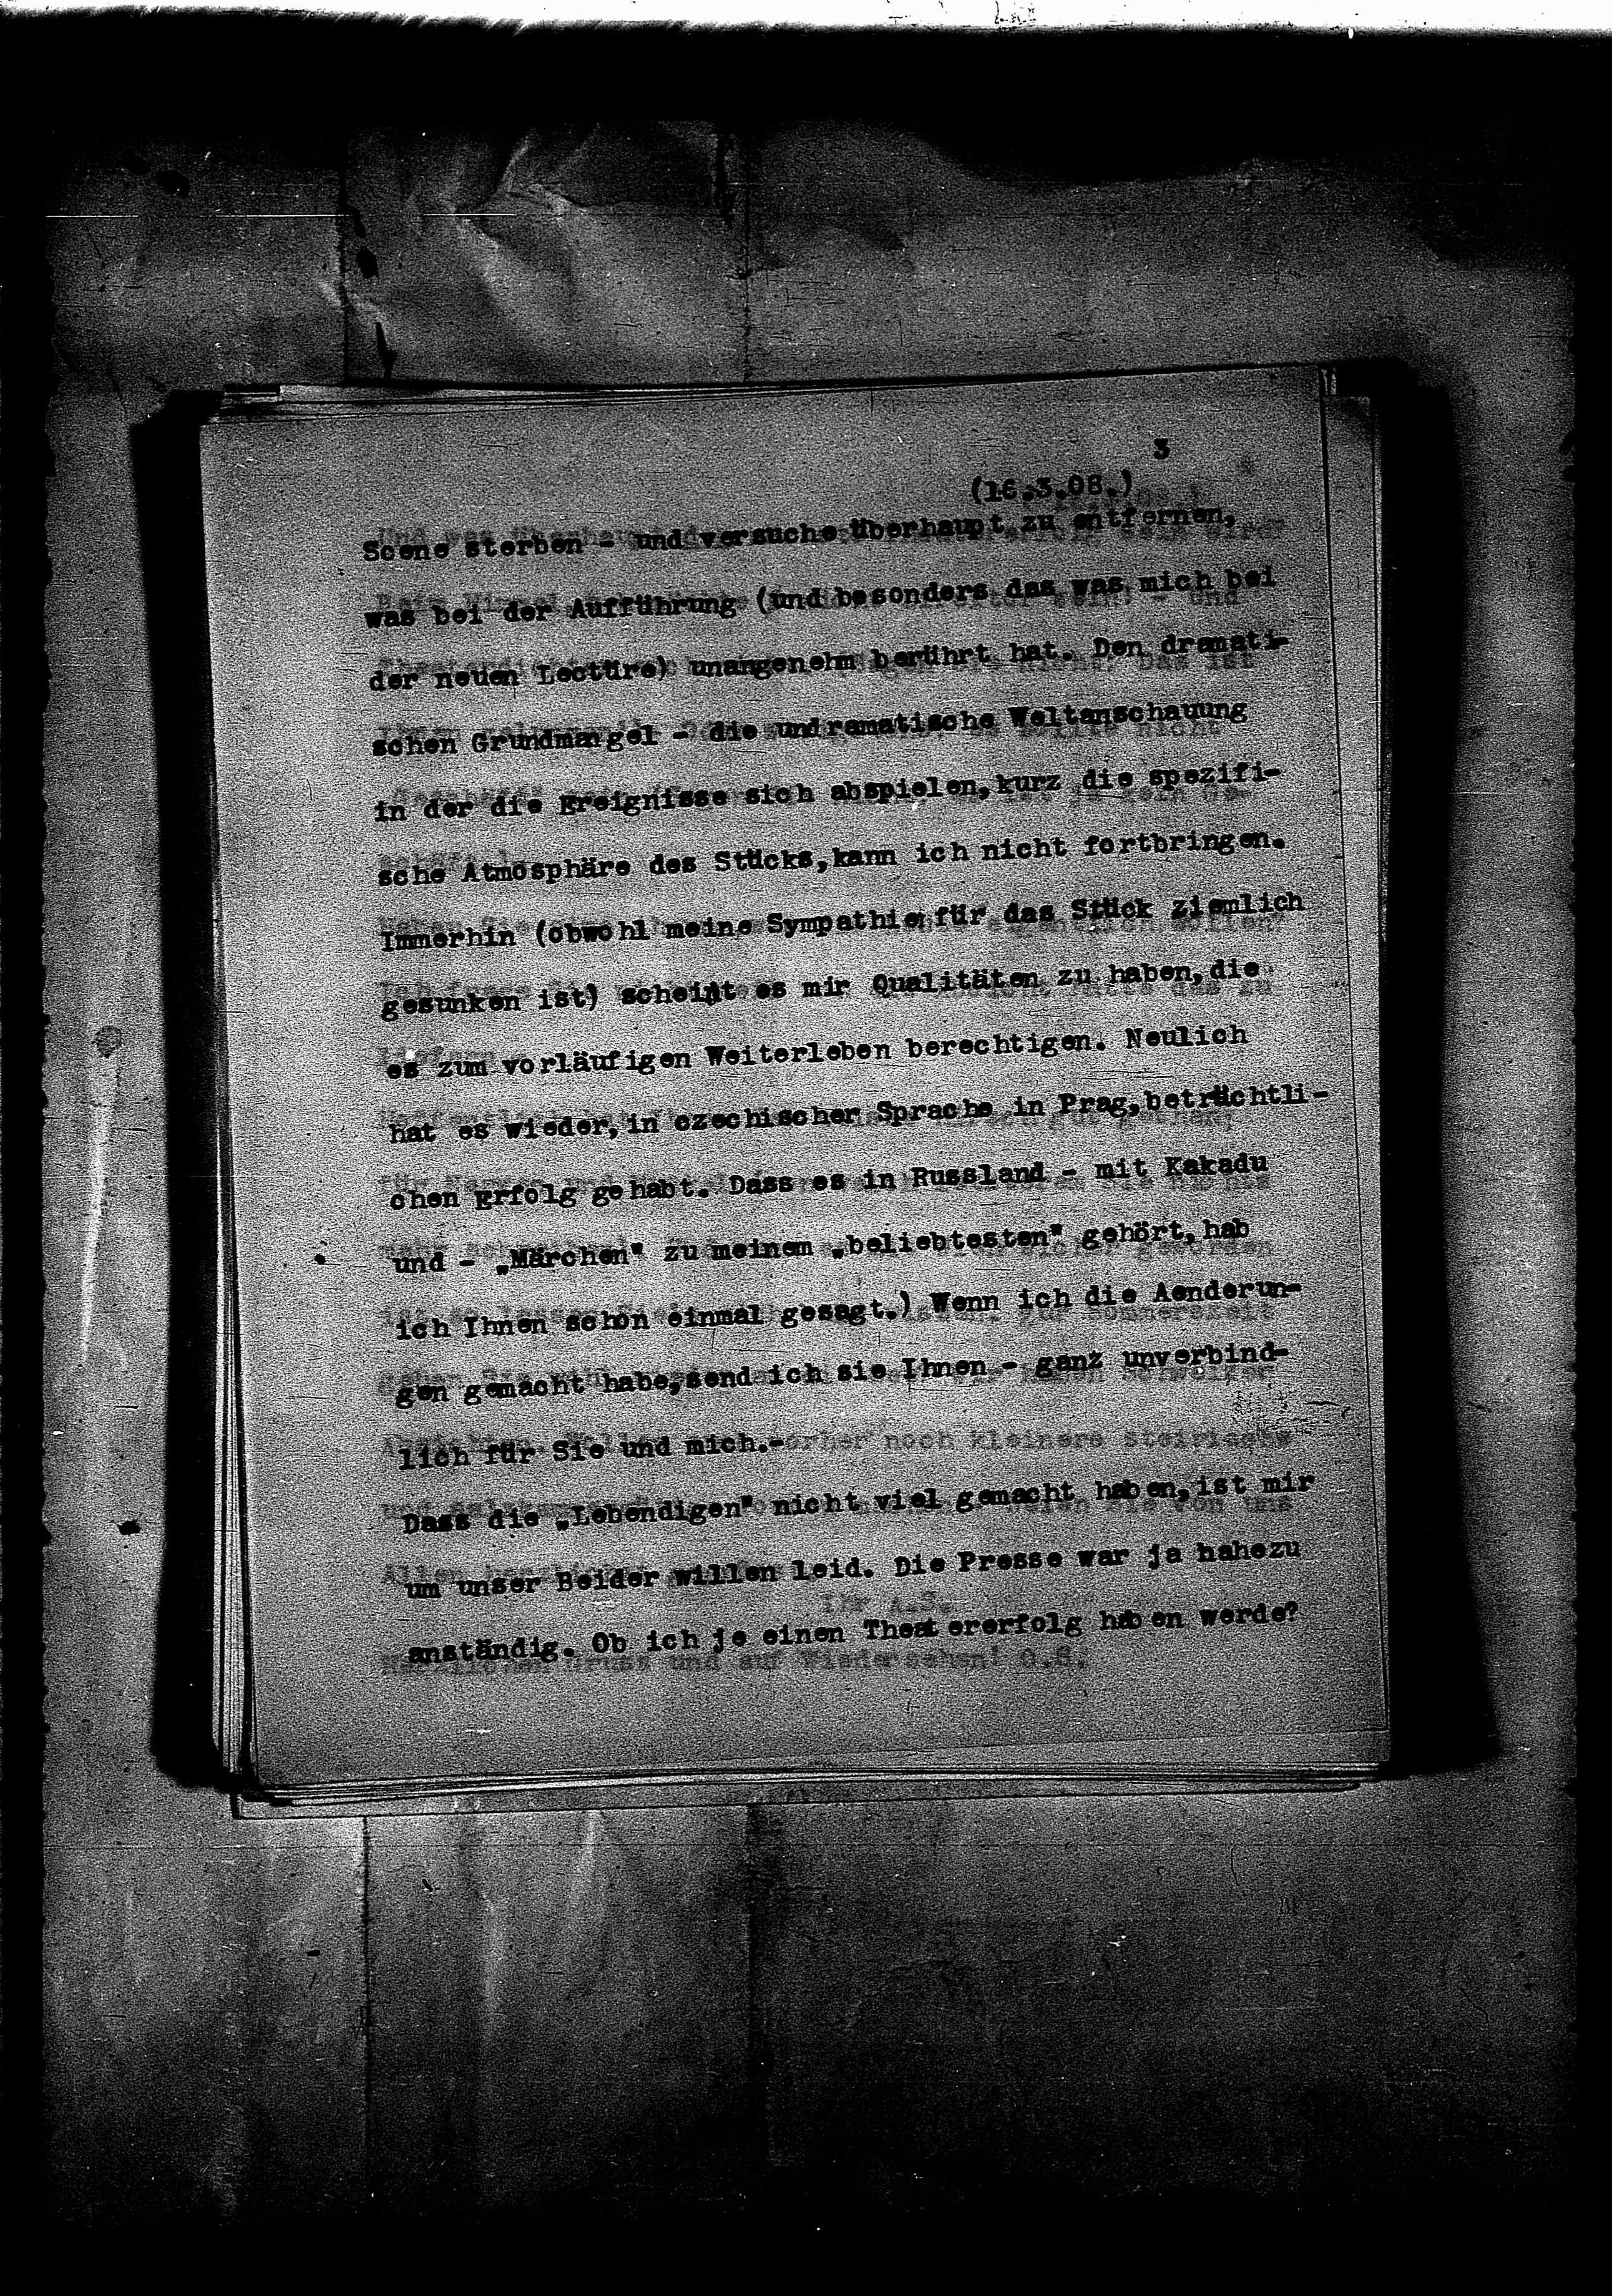 3
(16.3.08.)
Scene sterben - und versuche überhaupt zu entfernen,
was bei der Aufführung (und besonders das was mich bei
der neuen Lectüre) unangenehm berührt hat. Den dramati-
schen Grundmangel - die undramatische Weltanschauung
in der die Ereignisse sich abspielen, kurz die spezifi-
sche Atmosphäre des Stücks, kann ich nicht fortbringen.
Immerhin (obwohl meine Sympathie für das Stück ziemlich
gesunken ist) scheint es mir Qualitäten zu haben, die
es zum vorläufigen Weiterleben berechtigen. Neulich
hat es wieder, in czechischer Sprache in Prag, beträchtli-
chen Erfolg gehabt. Dass es in Russland - mit Kakadu
und - „Märchen" zu meinem „beliebtesten" gehört, hab
ich Ihnen schon einmal gesagt.) Wenn ich die Aenderun-
gen gemacht habe, send ich sie Ihnen - ganz unverbind-
lich für Sie und mich.-
Dass die „Lebendigen" nicht viel gemacht haben, ist mir
um unser Beider willen leid. Die Presse war ja nahezu
anständig. Ob ich je einen Theatererfolg haben werde?